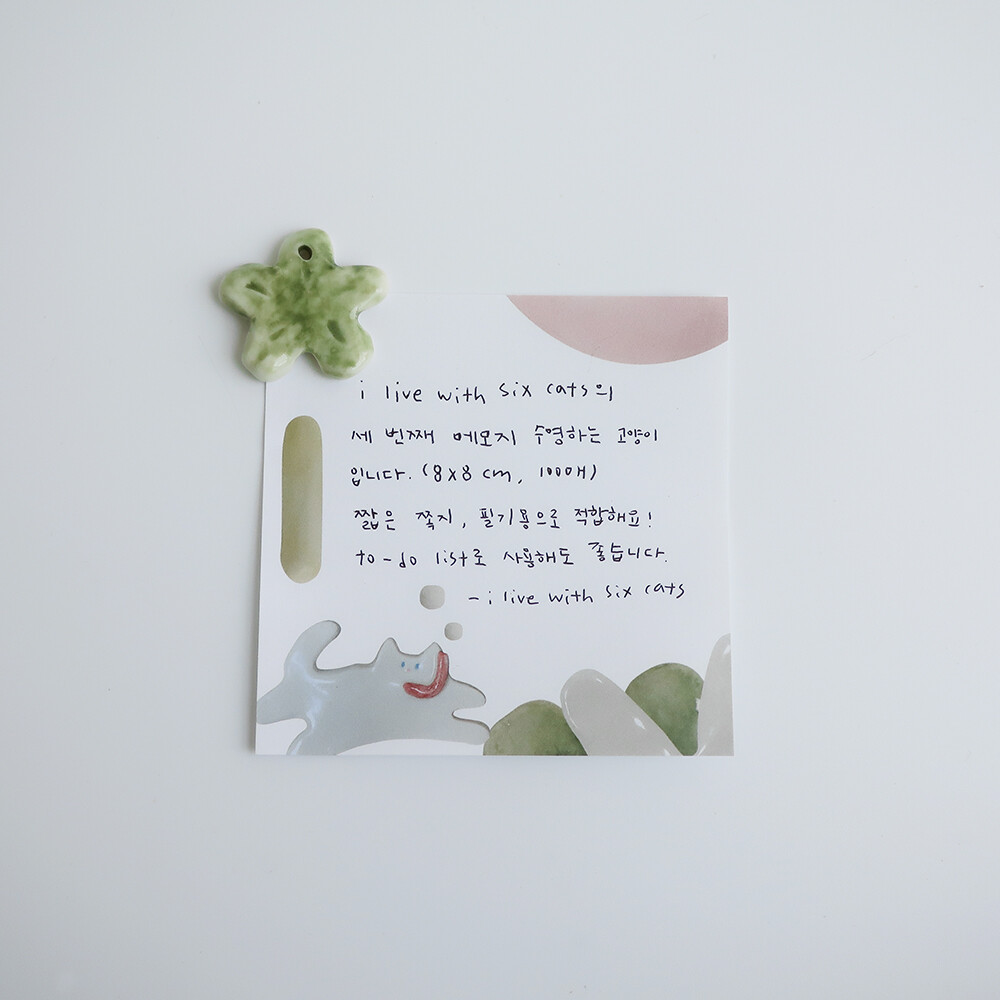 i live with six cats의
세 번째 메모지 수영하는 고양이
입니다. (8x8 cm, 100매)
짧은 쪽지, 필기용으로 적합해요!
to-do list로 사용해도 좋습니다.
- i live with six cats